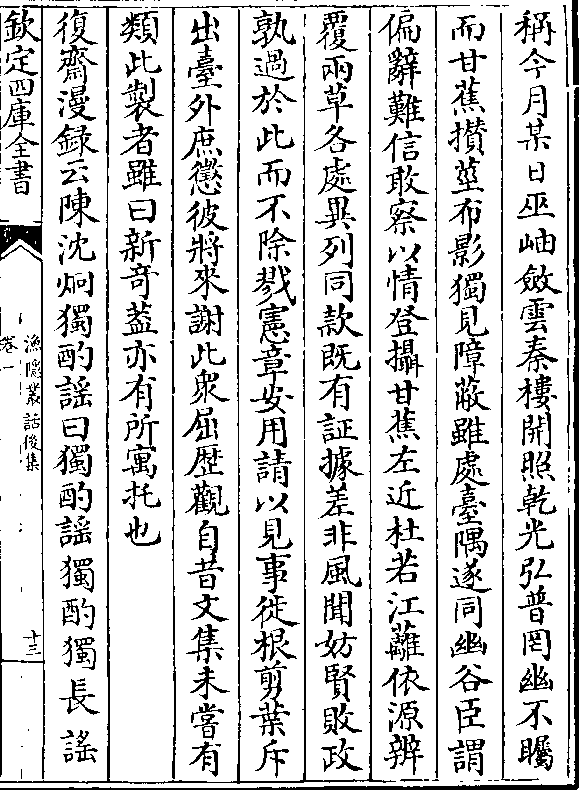 稱今月某日巫岫斂雲秦樓開照乾光弘普罔幽不矚
而甘蕉攅莖布影獨見障蔽雖處臺隅遂同幽谷臣謂
偏辭難信敢察以情登攝甘蕉左近杜若江蘺依源辨
覆兩草各處異列同款既有証據差非風聞妨賢敗政
孰過於此而不除戮憲章安用請以見事徙根剪葉斥
出臺外庶懲彼將來謝此衆屈歴觀自昔文集未嘗有
類此製者雖曰新奇葢亦有所寓托也
復齋漫録云陳沈炯獨酌謡曰獨酌謡獨酌獨長謡
欽定四庫全書
漁隱叢話後集
卷一
十三